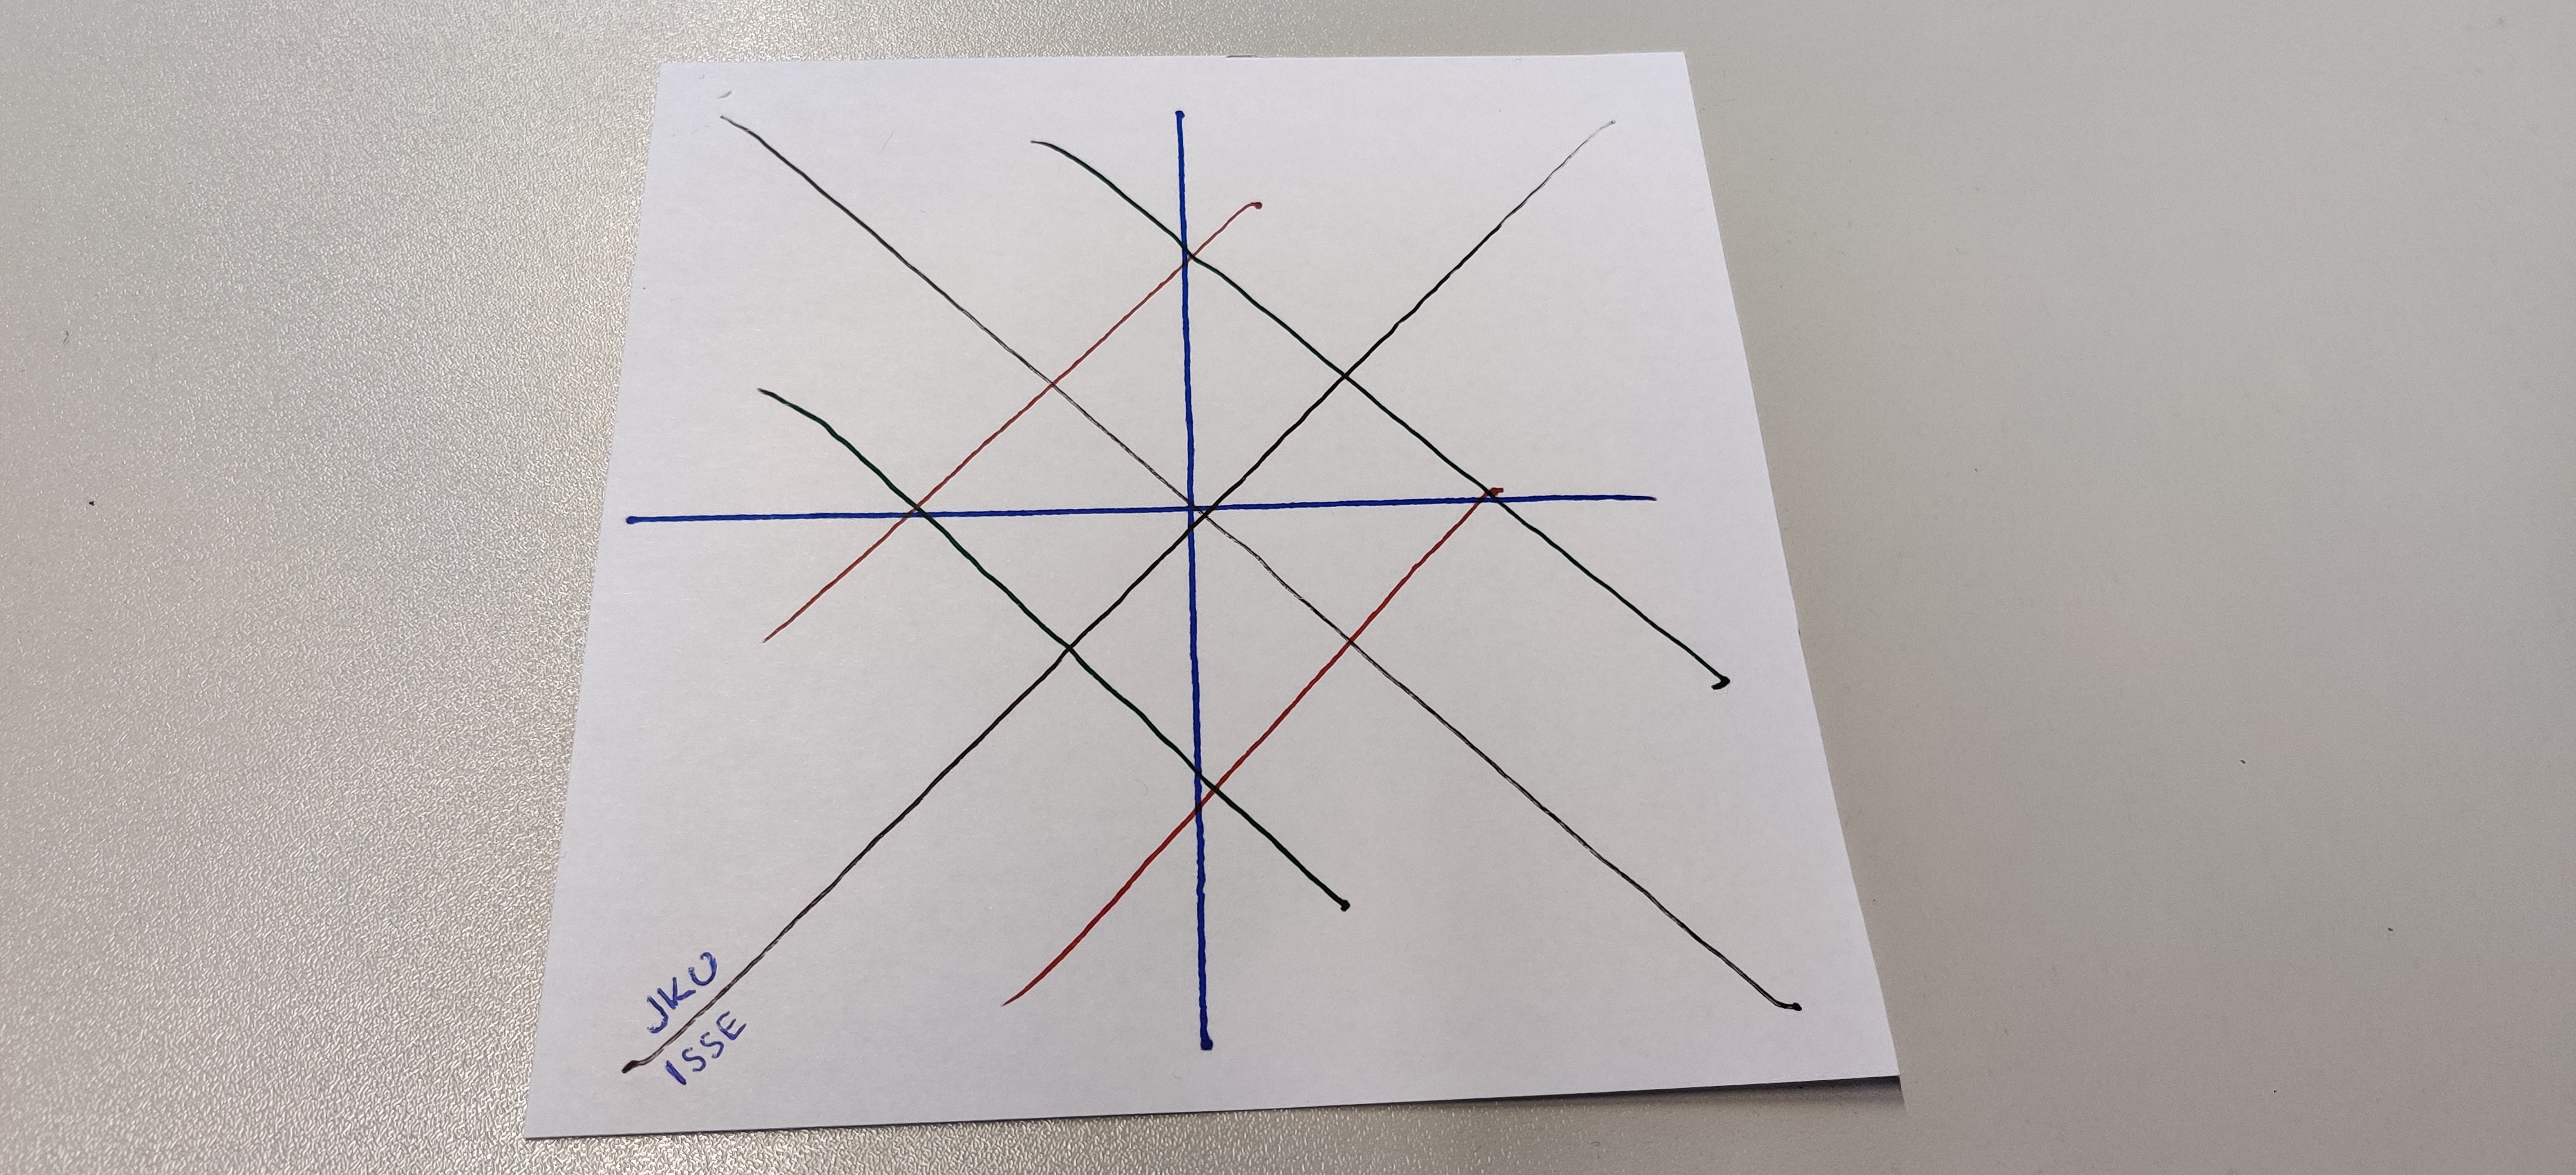 JKU
ISSE